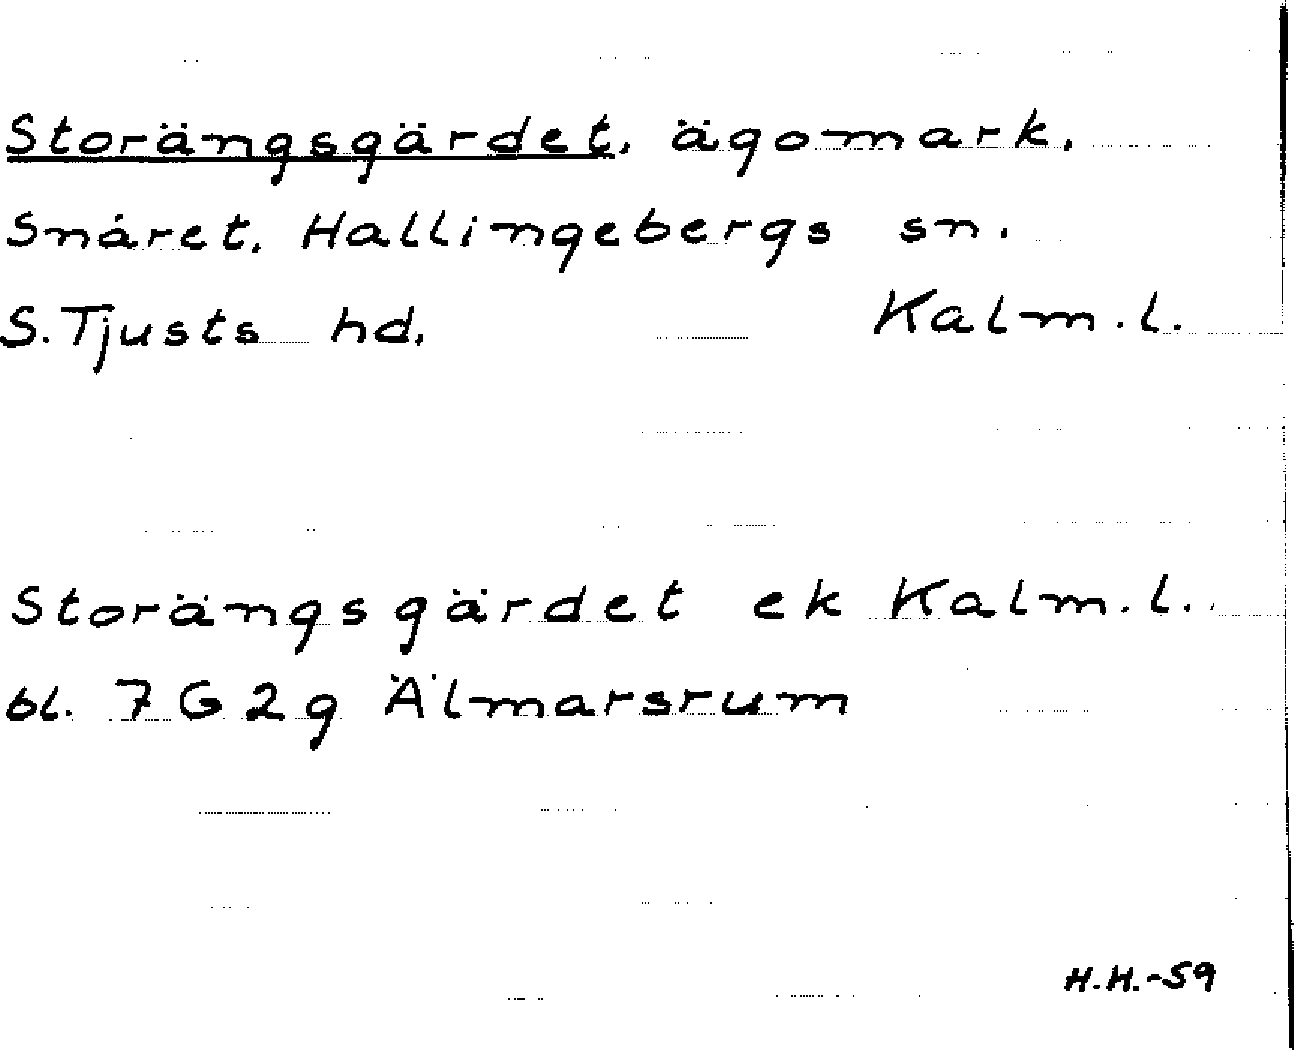 Storängsgärdet, ägomark.
Snåret. Hallingebergs sn.
S. Tjusts hd. Kalm. l.
Storängsgärdet ek Kalm. l.
bl. 7 G 2 g Älmarsrum
H.H.-59